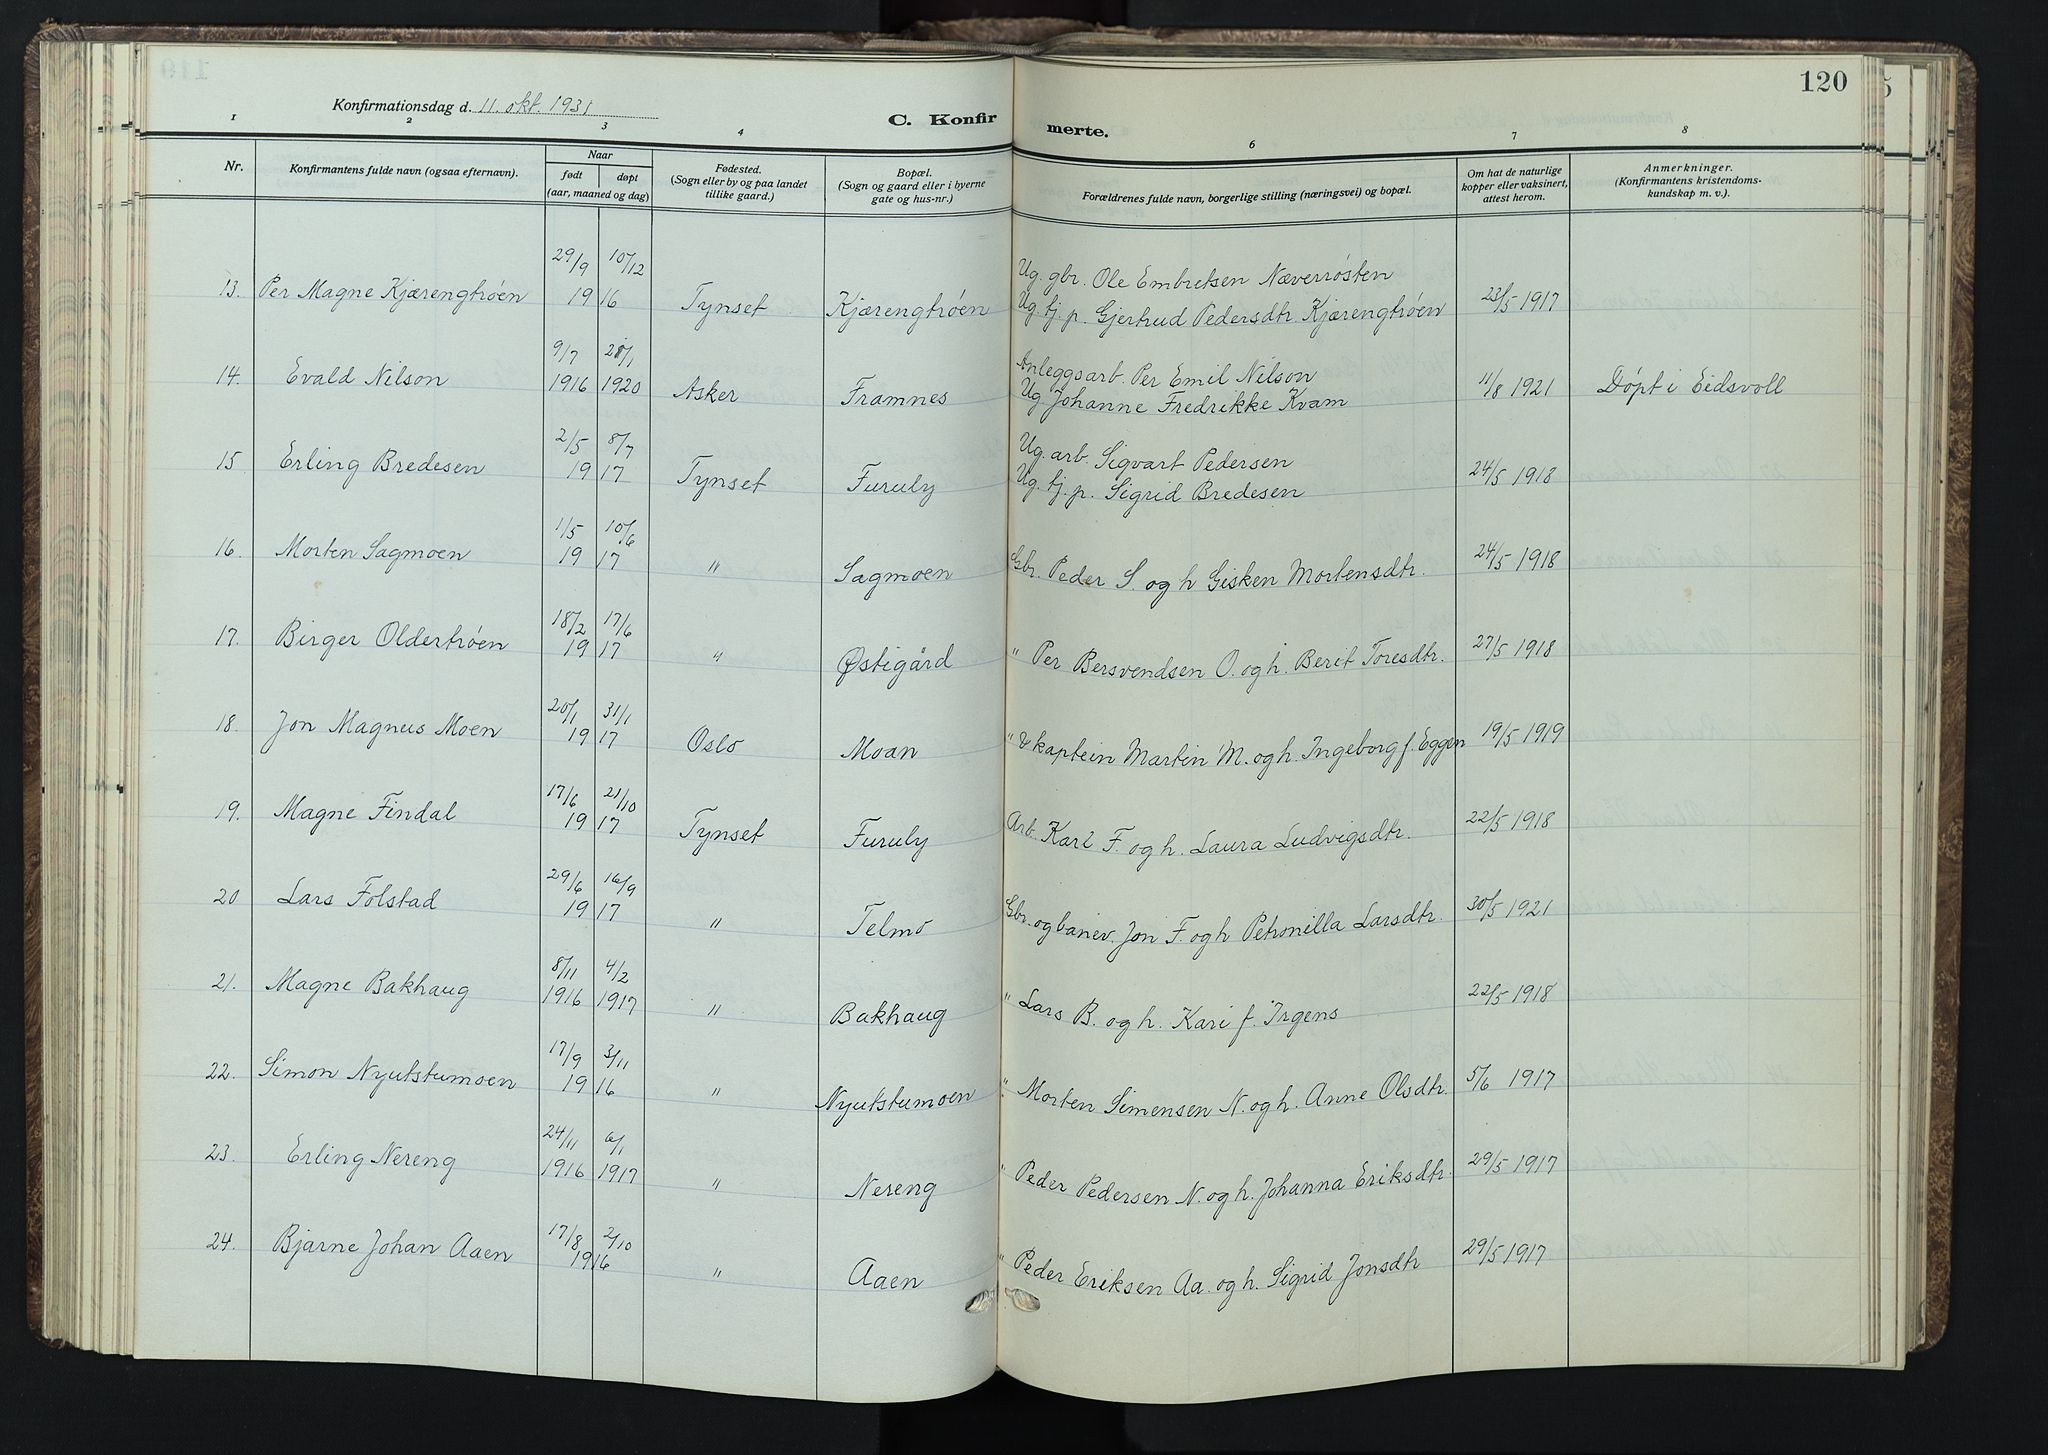 120
Konfirmationsdag d. 11. okt. 1931
C. Konfirmerte.
1 2 3 4 5 6 7 8
Nr. Konfirmantens fulde navn (ogsaa efternavn). Naar født døpt (aar, maaned og dag) Fødested. (Sogn eller by og paa landet tillike gaard.) Bopæl. (Sogn og gaard eller i byerne gate og hus-nr.) Forældrenes fulde navn, borgerlige stilling (næringsvei) og bopæl. Om hat de naturlige kopper eller vaksinert, attest herom. Anmerkninger. (Konfirmantens kristendomskundskap m. v.).
13. Per Magne Kjærengtrøen 29/9 10/12 1916 Tynset Kjærengtrøen Ug. gbr. Ole Embretsen Næverrøsten
Ug. tj. p. Gjertrud Pedersdtr Kjærengtrøen 23/5 1917
14. Evald Nilson 9/7 1916 1920 Asker Framnes Anleggsarb. Per Emil Nilson
Ug. Johanne Fredrikke Kvam 11/8 1921 Døpt i Eidsvoll
15 Erling Bredesen 2/5 8/7 1917 Tynset Furuly Ug. arb. Sigvart Pedersen
Ug. tj. p. Sigrid Bredesen 24/5 1918
16. Morten Sagmoen 1/5 10/6 1917 " Sagmoen Gbr. Peder S. og h Gisken Mortensdtr. 24/5 1918
17. Birger Oldertrøen 18/2 17/6 1917 " Østigård " Per Bersvendsen O. og h. Berit Toresdtr. 27/5 1918
18. Jon Magnus Moen 20/1 31/1 1917 Oslo Moan " & kaptein Martin M. og h. Ingeborg f. Eggen 19/5 1919
19. Magne Findal 17/6 21/10 1917 Tynset Furuly Arb. Karl F. og h. Laura Ludvigsdtr. 22/5 1918
20 Lars Folstad 29/6 16/9 1917 " Telmo Gbr. og banev. Jon F. og h Petronilla Larsdtr. 30/5 1921
21. Magne Bakhaug 8/11 1916 4/2 1917 " Bakhaug " Lars B. og h. Kari f. Irgens 22/5 1918
22. Simon Nyutstumoen 17/9 3/11 1916 " Nyutstumoen " Morten Simensen N. og h. Anne Olsdtr. 5/6 1917
23. Erling Nereng 24/11 1916 6/1 1917 " Nereng " Peder Pedersen N. og h. Johanna Eriksdtr. 29/5 1917
24. Bjarne Johan Aaen 17/8 2/10 1916 " Aaen " Peder Eriksen Aa. og h. Sigrid Jonsdtr 29/5 1917